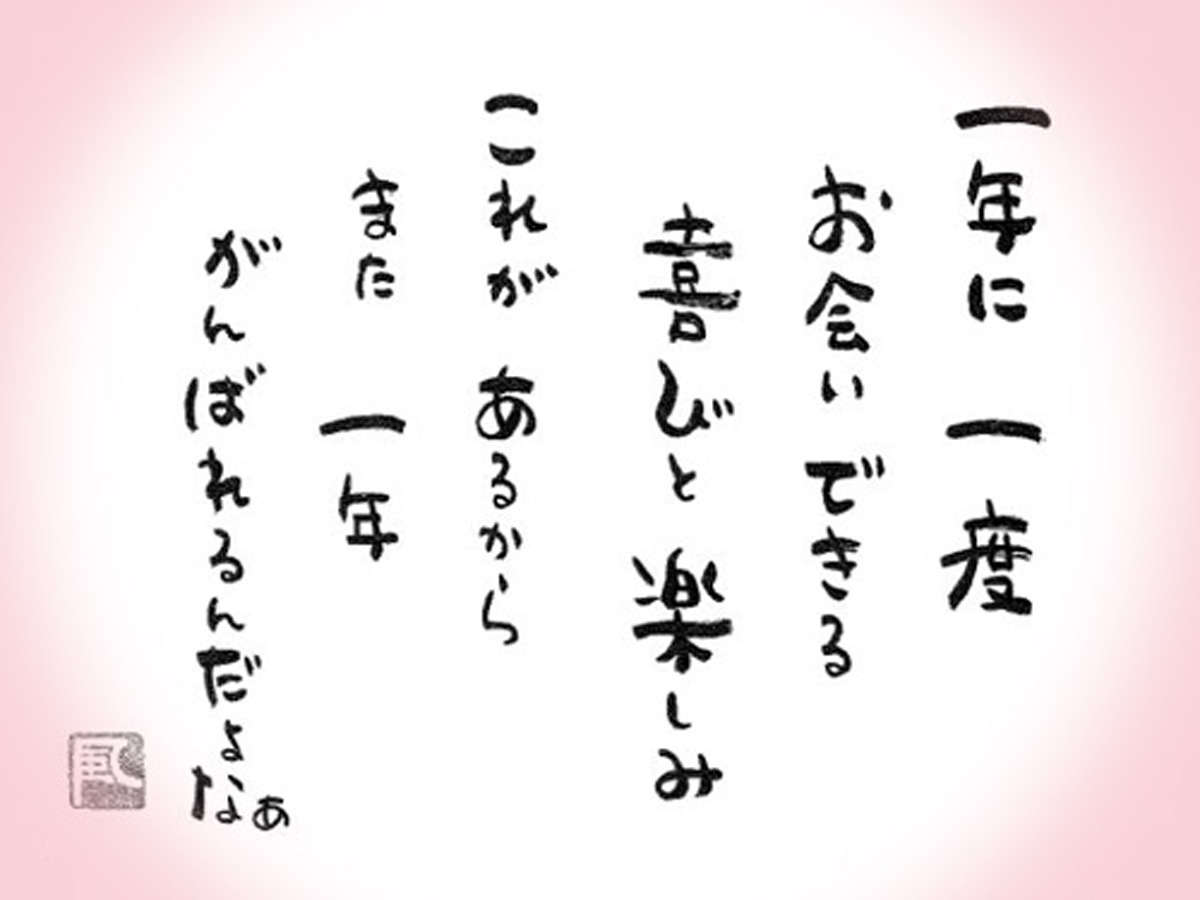 一年に 一度
お会いできる
喜びと 楽しみ
これが あるから
また 一年
がんばれるんだよなぁ